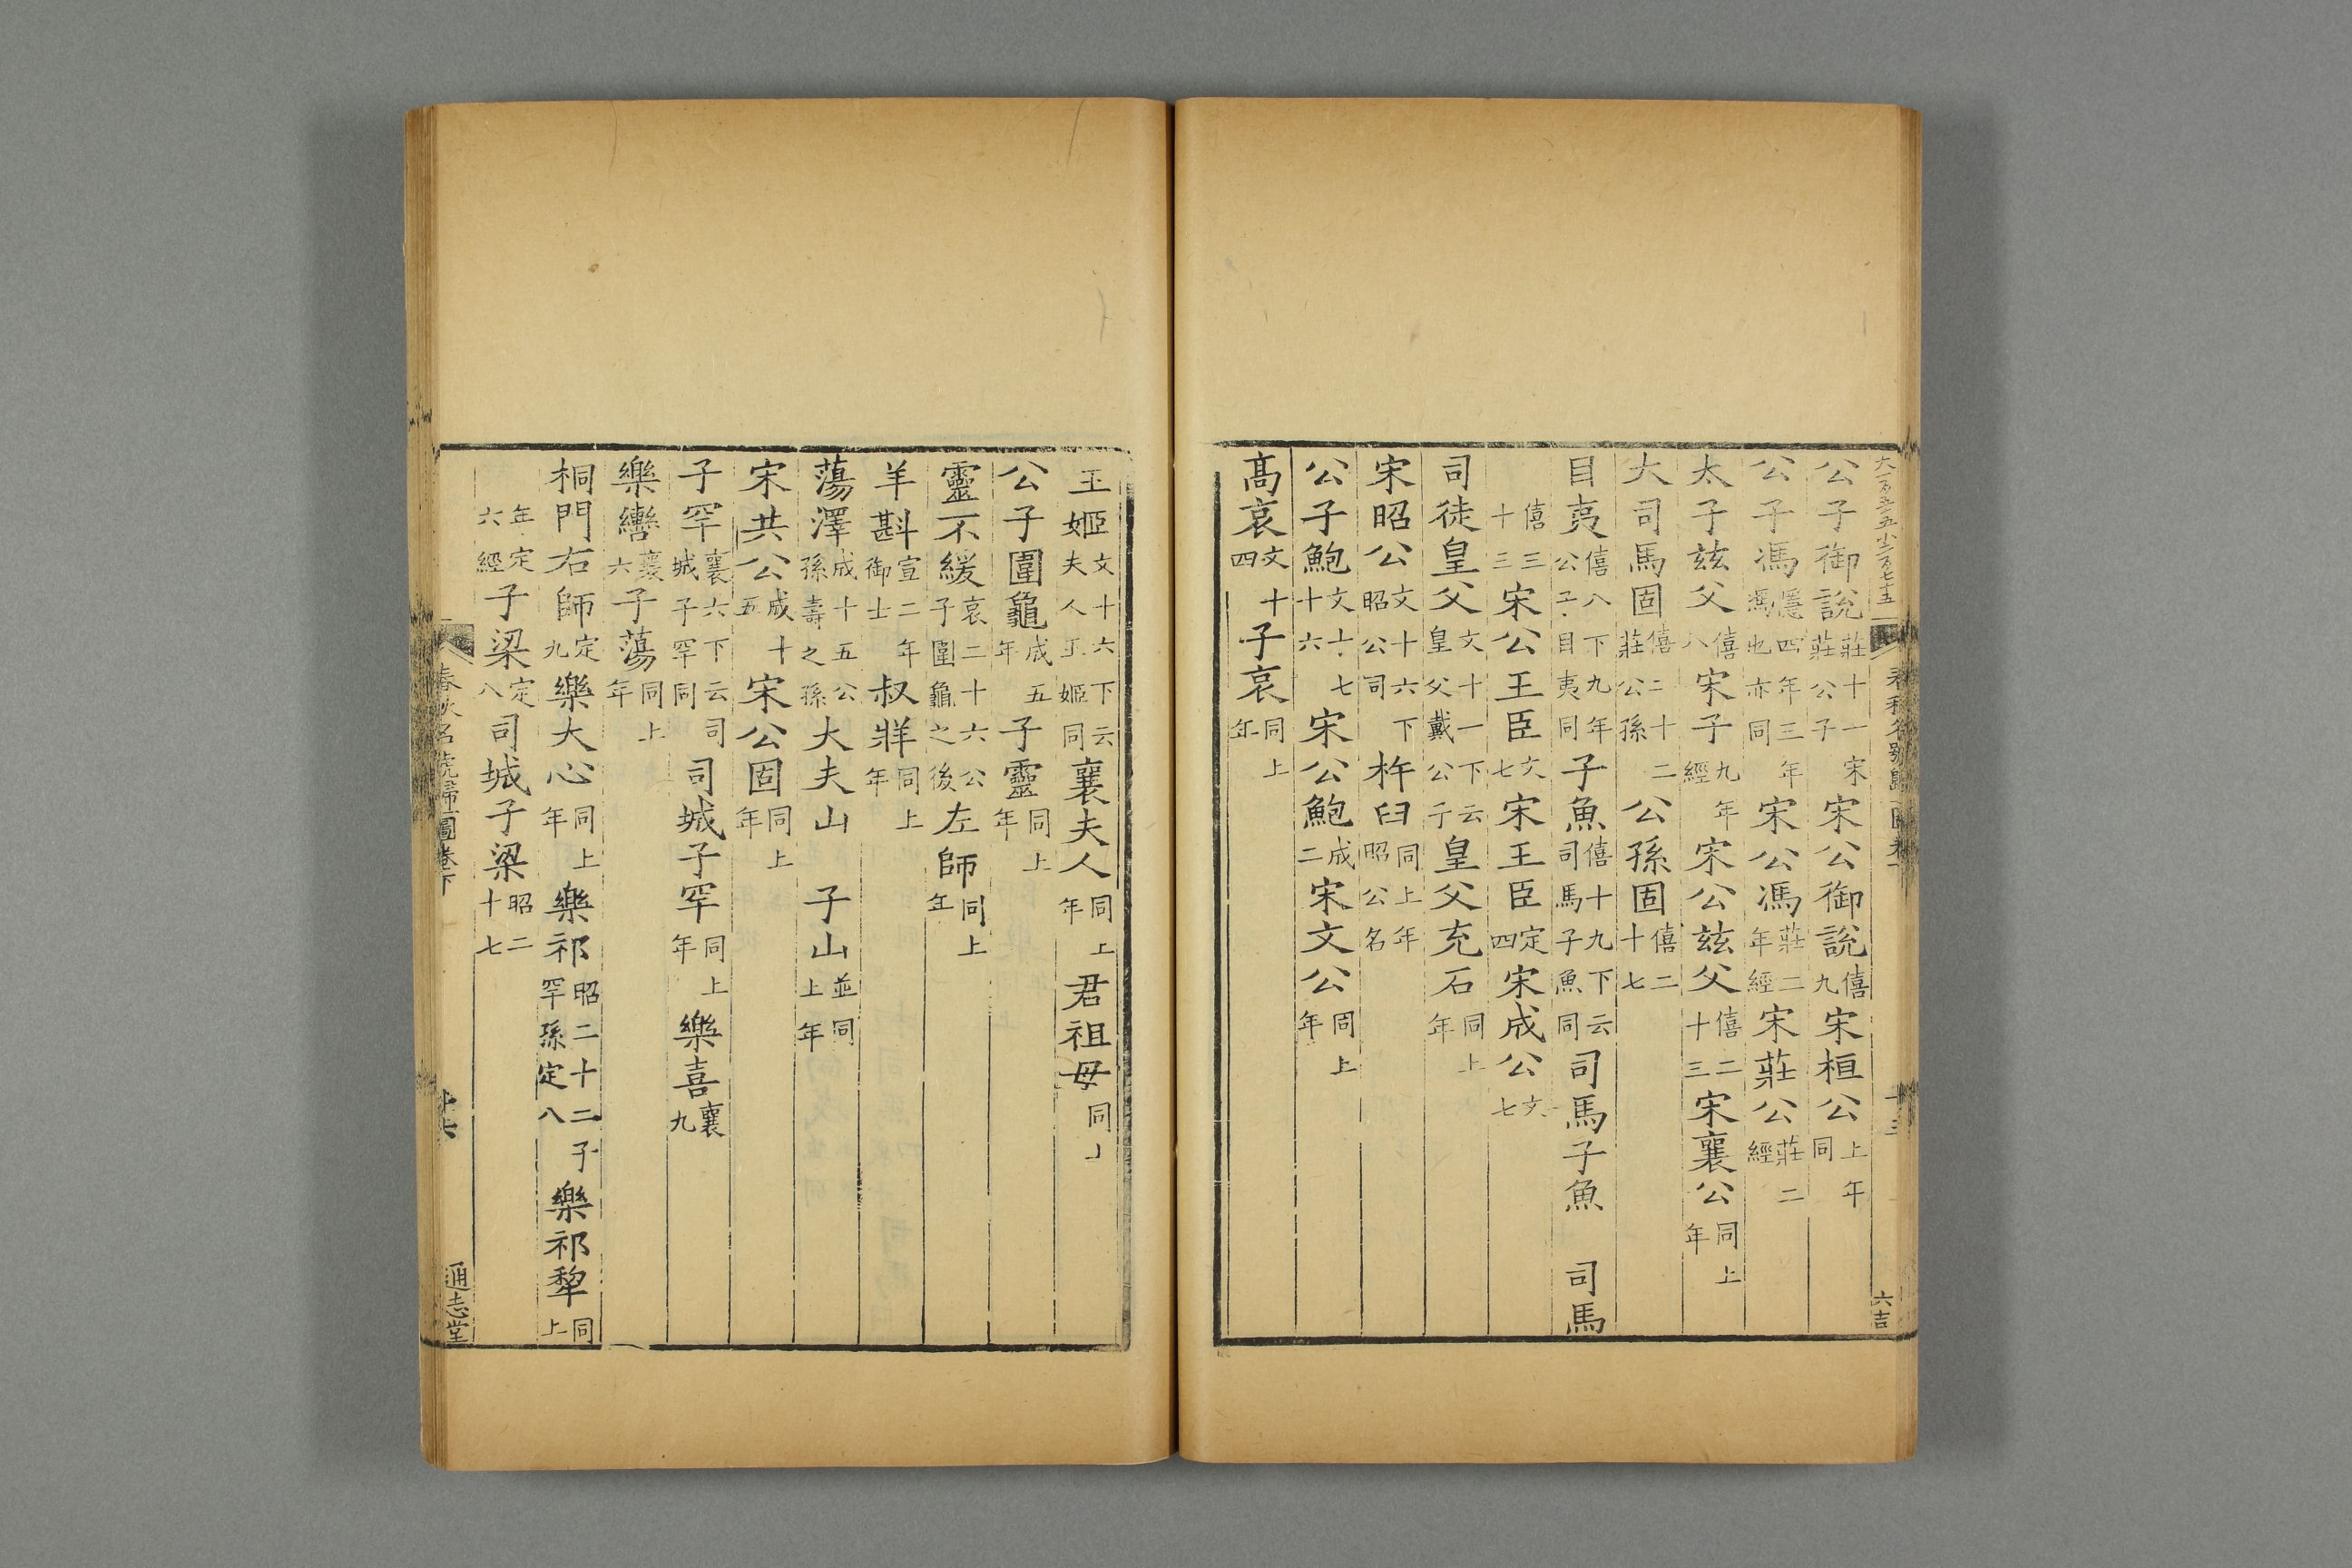 公子御說莊十一宋莊公子宋公御說僖九宋桓公上年同
公子馮隱四年三年馮也亦同宋公馮莊二年經宋莊公莊二經
太子茲父僖八宋子九年經宋公茲父僖二十三宋襄公同上年
大司馬固僖二十二莊公孫公孫固僖二十七
目夷僖八下九年公子目夷同子魚僖十九下云司馬子魚同司馬子魚 司馬
僖三十三宋公王臣文七宋王臣定四宋成公文七
司徒皇父文十一下云皇父戴公子皇父充石同上年
宋昭公文十六下昭公司杵臼同上年昭公名
公子鮑文十七十六宋公鮑成二宋文公同上年
高哀文十四子哀同上年
六吉
王姬文十六下云夫人王姬同襄夫人同上年君祖母同上
公子圍龜成五年子靈同上年
靈不緩哀二十六公子圍龜之後左師同上年
羊斟宣二年御士叔牂同上年
蕩澤成十五公孫壽之孫大夫山 子山並同上年
宋共公成十五宋公固同上年
子罕襄六下云司城子罕同司城子罕同上年樂喜襄九
樂轡襄六子蕩同上年
桐門右師定九樂大心同上年樂祁昭二十二子罕孫定八樂祁犂同上
年定六經子梁定八司城子梁昭二十七
春秋名號歸一圖卷下
通志堂